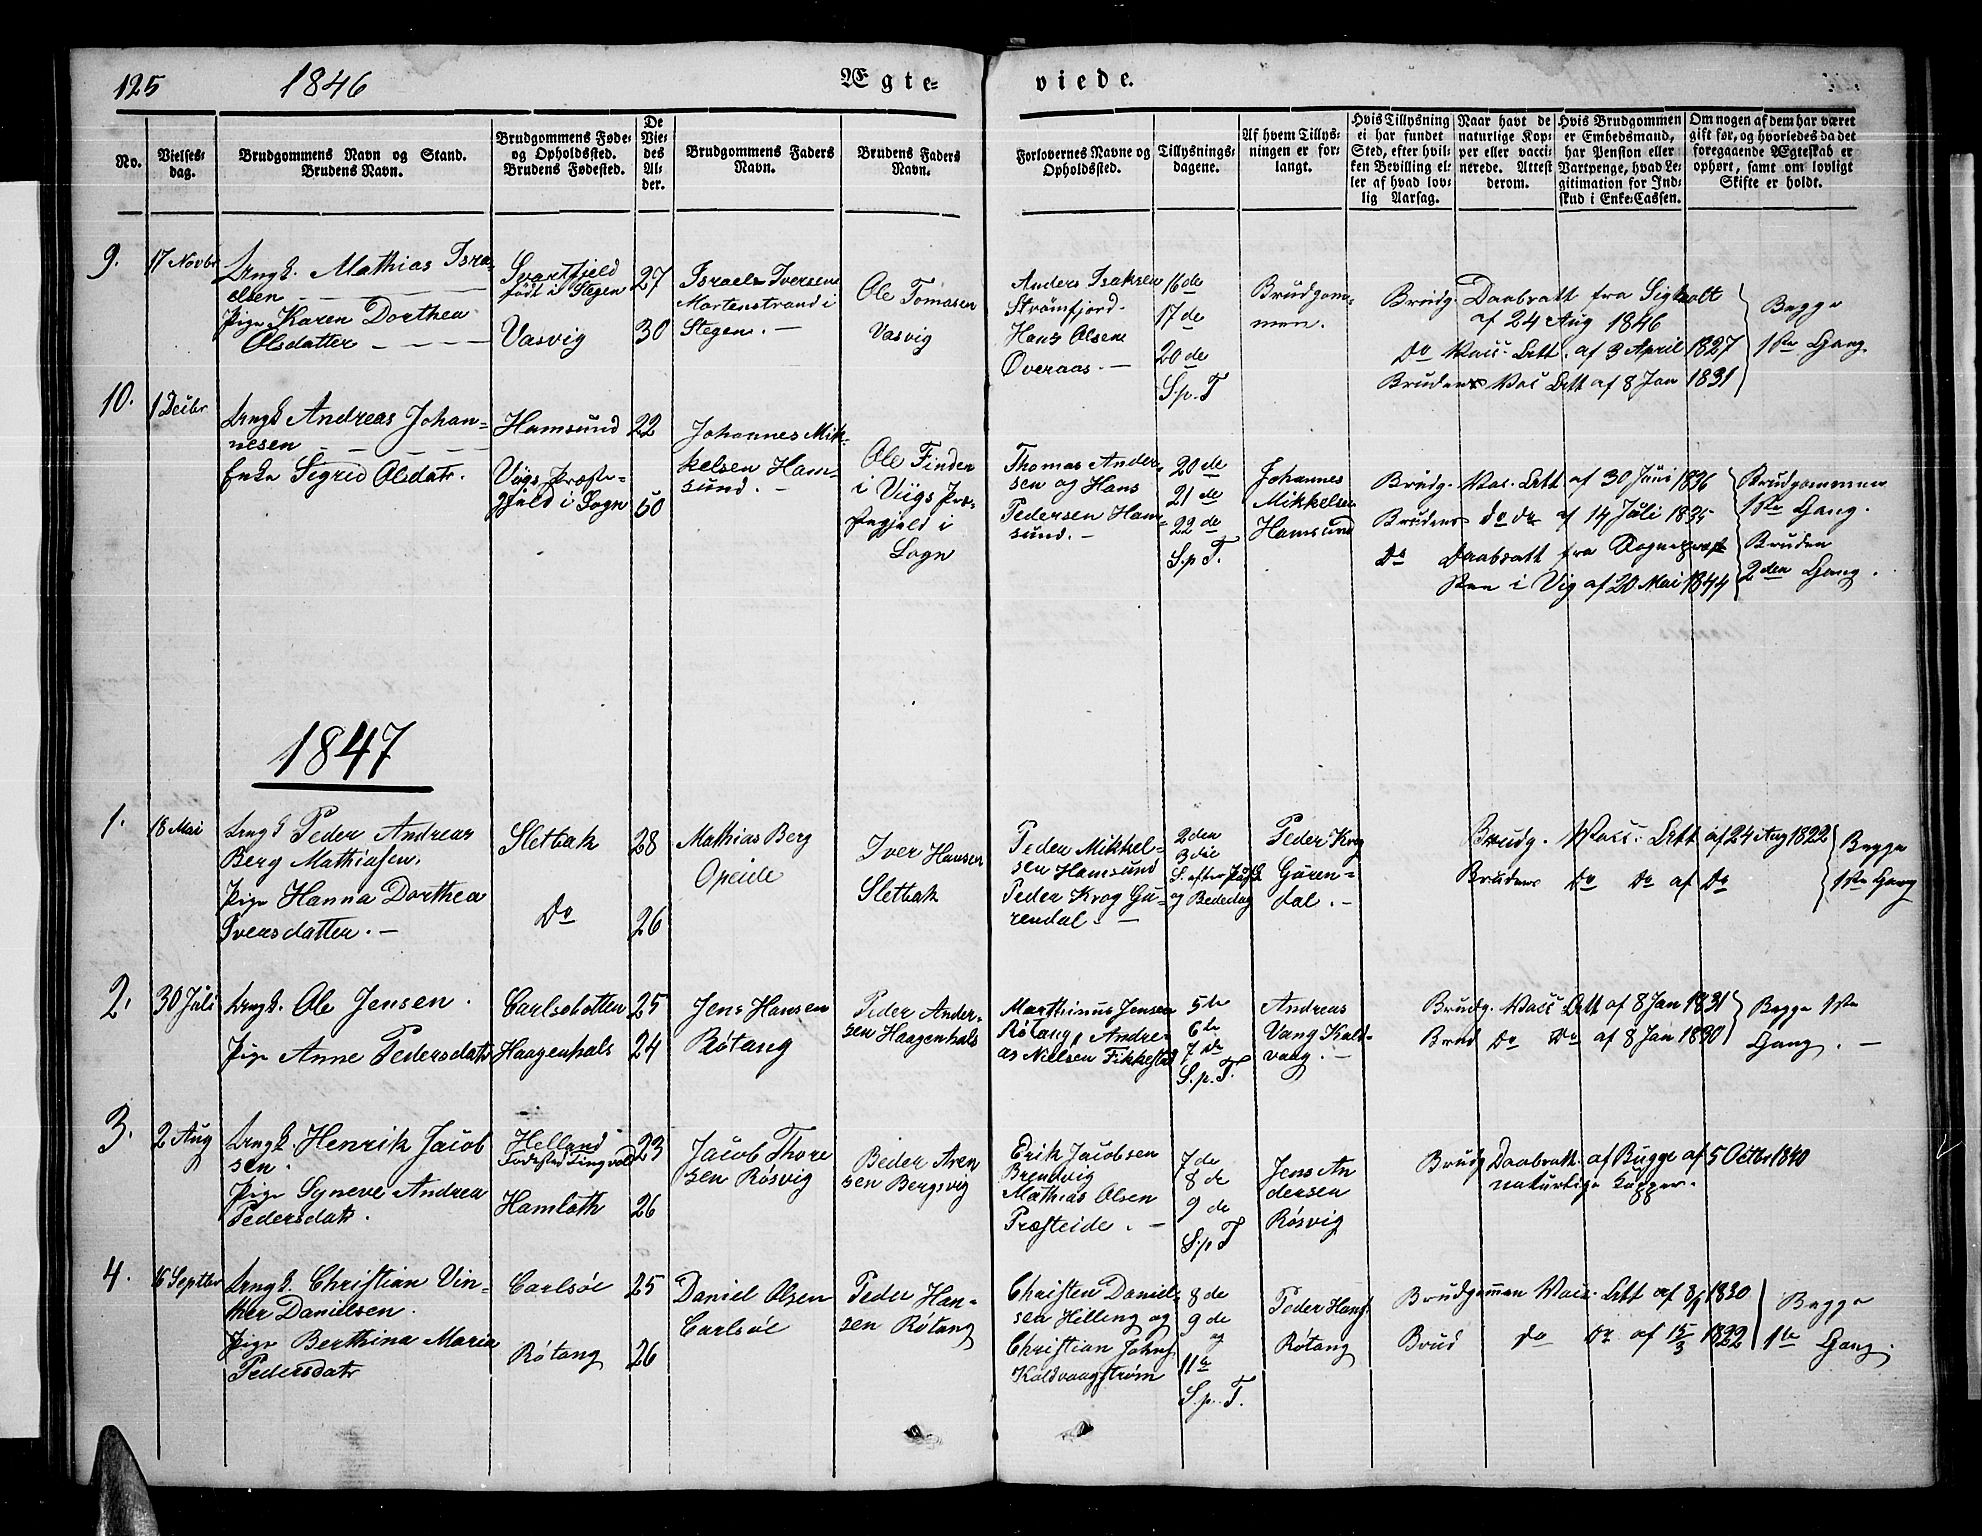 125 1846 Ægte-
viede.
No.
Vielses-
dag.
Brudgommens Navn og Stand.
Brudens Navn.
Brudgommens Føde-
og Opholdssted.
Brudens Fødested.
De
Vie-
des
Al-
der.
Brudgommens Faders
Navn.
Brudens Faders
Navn.
Forlovernes Navne og
Opholdssted.
Tillysnings-
dagene.
Af hvem Tillys-
ningen er for-
langt.
Hvis Tillysning
ei har fundet
Sted, efter hvil-
ken Bevilling el-
ler af hvad lov-
lig Aarsag.
Naar havt de
naturlige Kop-
per eller vacci-
nerede. Attest
derom.
Hvis Brudgommen
er Embedsmand,
har Pension eller
Vartpenge, hvad Le-
gitimation for Ind-
skud i Enke-Cassen.
Om nogen af dem har været
gift før, og hvorledes da det
foregaaende Ægteskab er
ophørt, samt om lovligt
Skifte er holdt.
9.
17 Novbr
Ungk. Mathias Isra-
elsen
Pige Karen Dorthea
Olsdatter
Svartfjeld
født i Stegen
Vasvig
27
30
Israels Iversen
Mortenstrand i
Stegen. —
Ole Tomasen
Vasvig
Anders Isaksen
Strømfjord
Hans Olsen
Overaas. —
16de
17de
20de
S.p.T
Brudgom-
men.
Brudg. Daabsatt fra Sigholt
af 24 Aug 1846
Do Vacc. Att. af 3 April 1827
Brudens Vac Att af 8 Jan 1831
Begge
1ste Gang
10.
1 Decbr
Ungk Andreas Johan-
nesen
Enke Sigrid Olsdatr.
Hamsund
Viigs Præste-
gjeld i Sogn
22
50
Johannes Mik-
kelsen Ham-
sund. —
Ole Finden
i Viigs Præ-
stegjeld i
Sogn
Thomas Ander-
sen og Hans
Pedersen Ham-
sund. —
20de
21de
22de
S.p T.
Johannes
Mikkelsen
Hamsund
Brudg. Vac. Att af 30 Juni 1836
Brudens do do af 14 Juli 1835
Do Daabsatt fra Sognepræ
sten i Vig af 20 Mai 1844
Brudgommen
1ste Gang.
Bruden
2den Gang.
1847
1.
18 Mai
Ungk Peder Andreas
Berg Mathiasen.
Pige Hanna Dorthea
Iversdatter. —
Sletbak
Do
28
26
Mathias Berg
Opeide
Iver Hansen
Sletbak
Peder Mikkel-
sen Hamsund
Peder Krog Gu-
rendal. —
2den
3die
S. efter Paask
og Bededag
Peder Krog
Guren-
dal. —
Brudg. Vacc. Att af 24 Aug 1822
Brudens Do Do af Do
Begge
1ste Gang
2.
30 Juli
Ungk. Ole Jensen.
Pige Anne Pedersdatr
Carlsslotten
Haagenhals
25
24
Jens Hansen
Røtang
Peder Ander-
sen Haagenhals
Marthinus Jensen
Røtang, Andre-
as Nielsen Fikkestad
5te
6te
7de
S.p.T.
Andreas
Vang Kald-
vaag. —
Brudg. Vacc Att af 8 Jan 1831
Brud Do Do af 8 Jan 1830
Begge 1ste
Gang. —
3.
2 Aug
Ungk. Henrik Jacob
sen.
Pige Syneve Andrea
Pedersdatr.
Helland
Fødested Tingvold
Hamloth
23
26
Jacob Thore
sen Røsvig
Peder Aren
sen Bergsvig
Erik Jacobsen
Brendvig
Mathias Olsen
Præsteide. —
7de
8de
9de
S.p T
Jens An
dersen
Røsvig
Brudg Daabsatt. af Bugge af 5 Octbr 1840
naturlige Kopper.
4.
16 Septbr
Ungk. Christian Vin-
ther Danielsen.
Pige Berthina Maria
Pedersdatr
Carlsøl
Røtang
25
26
Daniel Olsen
Carlsøl
Peder Han-
sen Røtang
Christen Daniel-
sen Helleng og
Christian Johns
Kaldvaagstrøm
8de
9de
og
11te
S.p.T.
Peder Hans
Røtang
Brudgommen Vacc. Att af 8/9 1830
Brud Do Do af 15/3 1822
Begge
1ste Gang.